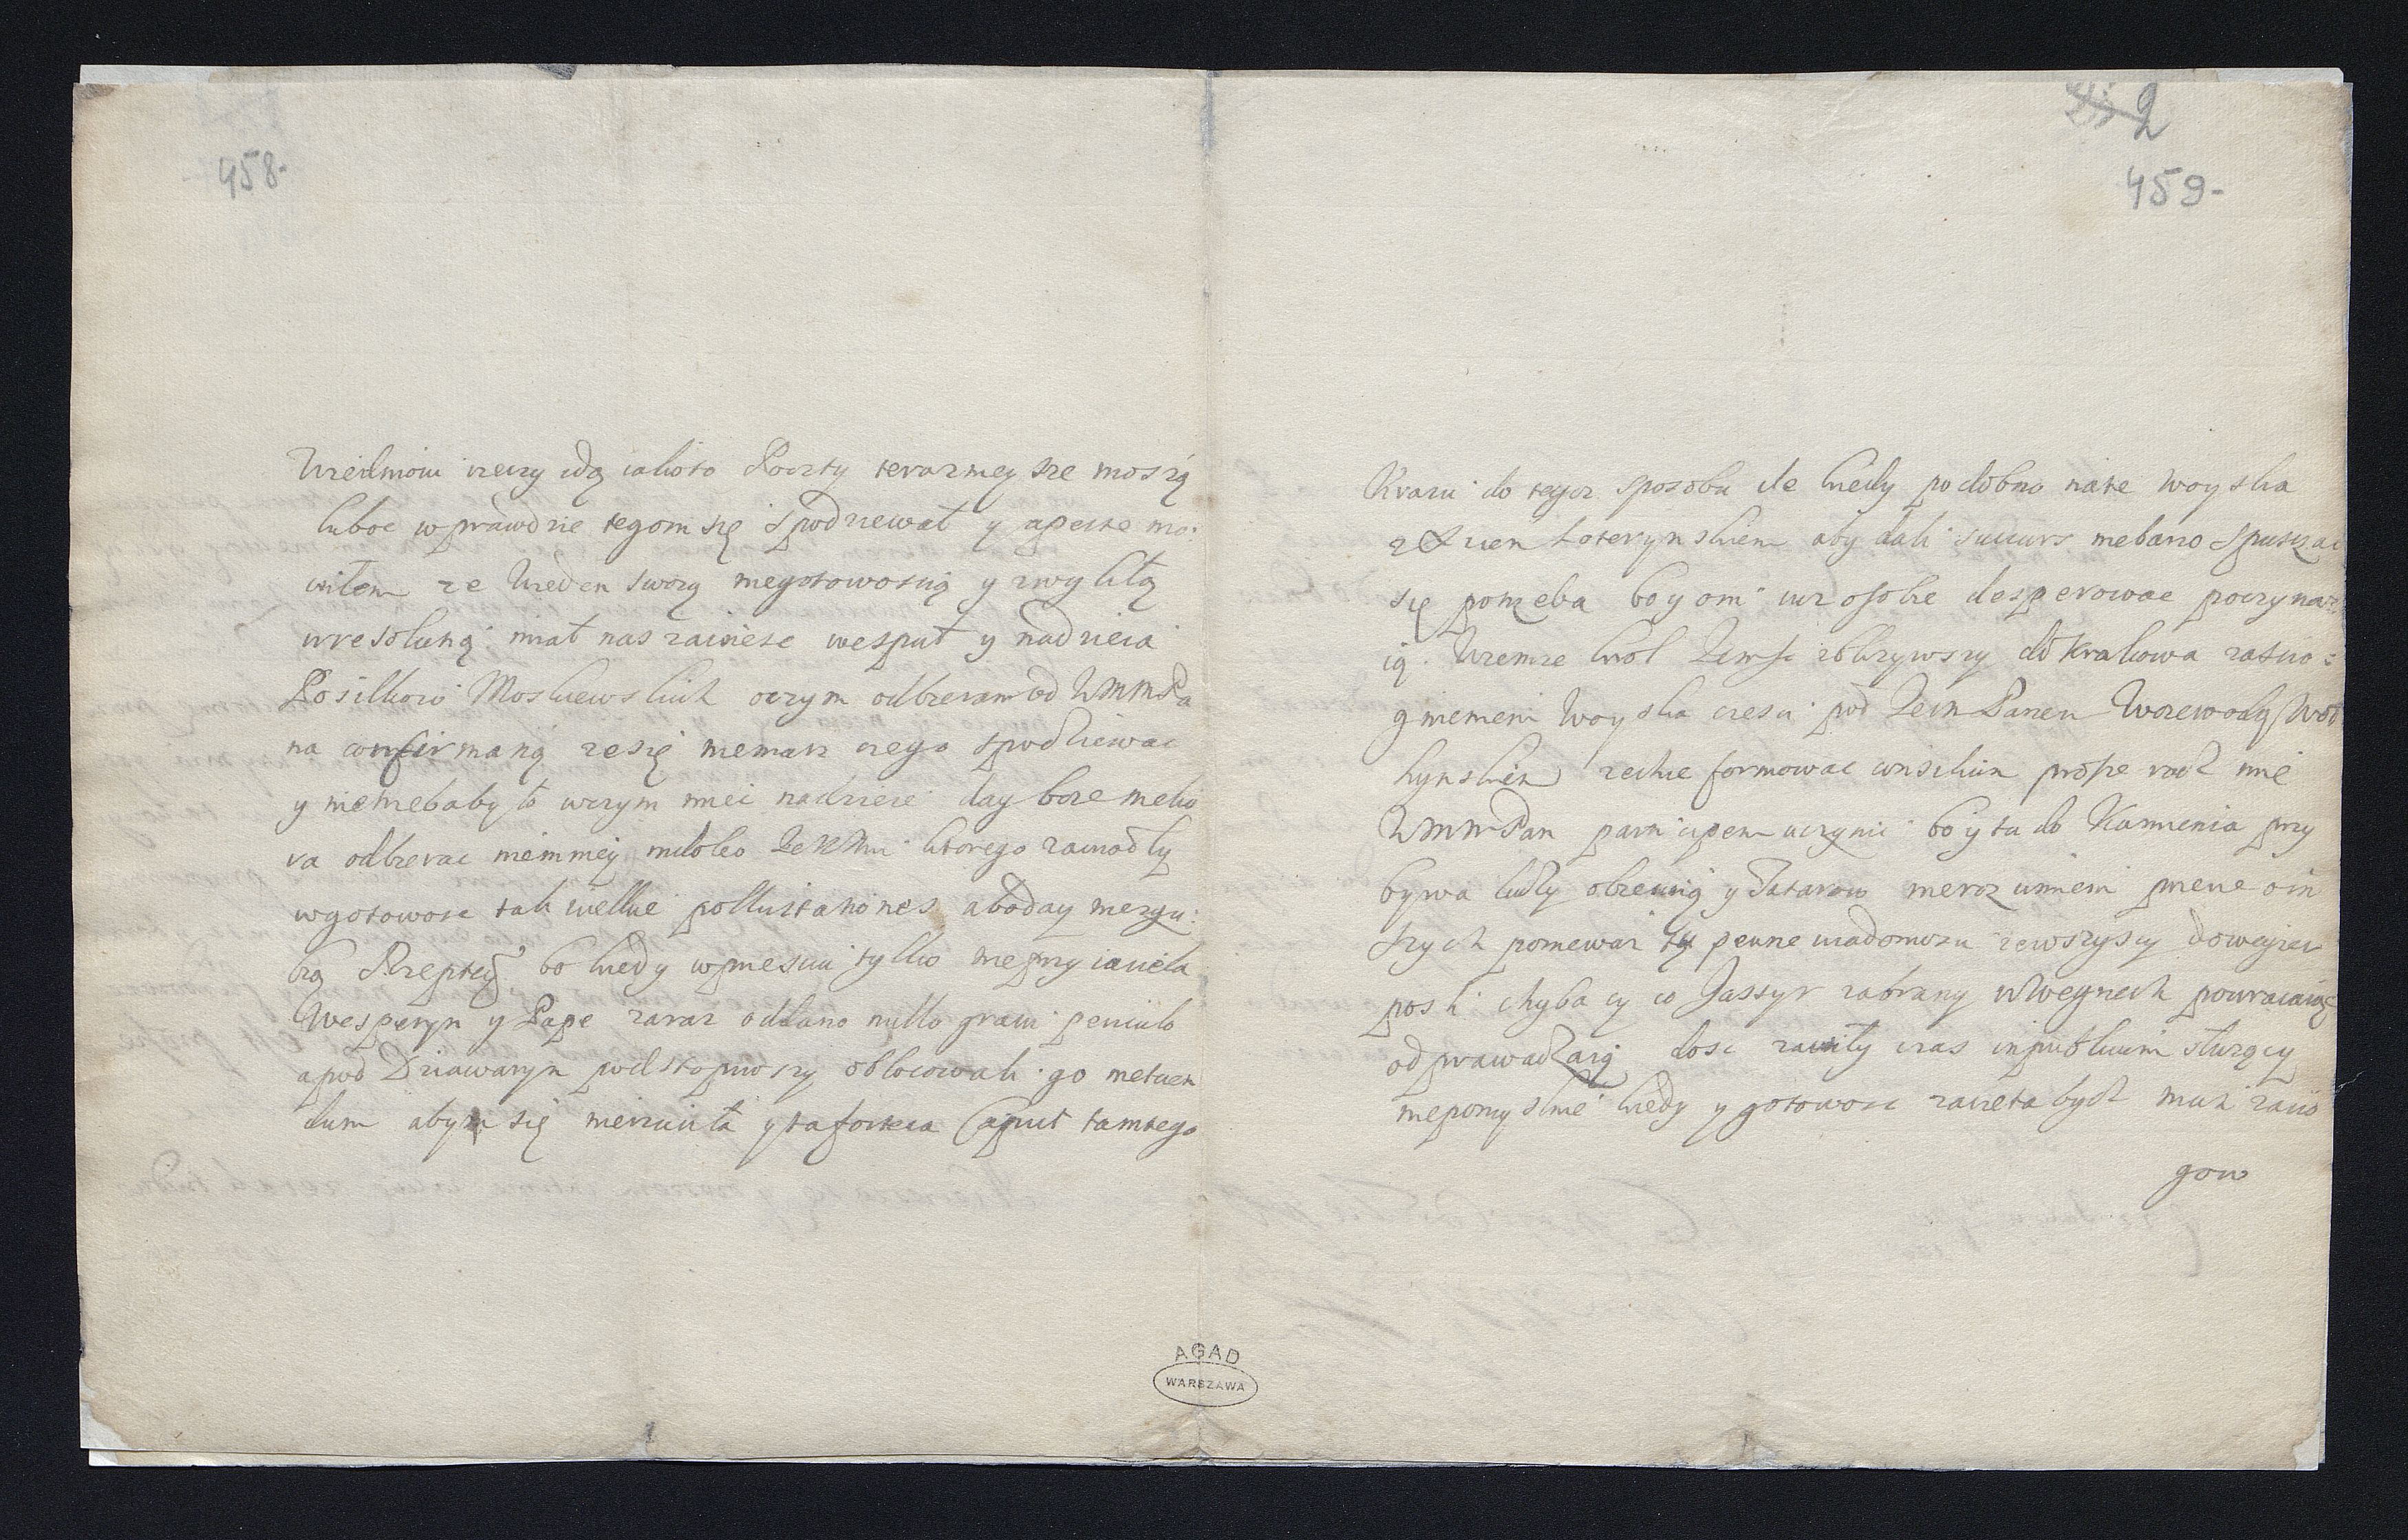 458-
Wiedniowi rzeczy idą iakoto Poczty terazniey sze noszą
luboc wprawdzie tegom się spodziewał y aperte mo:
wiłem ze Wieden swoią niegotowoscią y zwykłą
irresolutią miał nas zawiesc wespuł y nadzieia
Posilkow Moskiewskich oczym odbieram od WMMPa
na confirmatią zesię niemasz czego spodziewac
y nietrzebaby to wczym miec nadzieie day boze melio
ra odbierac niemniey
wgotowosc tak wielkie aboday niezgu:
bią Rzeptey bo kiedy wpiesciu tylko nieprzyiaciela
Wesperyn y Pape zaraz oddano nullo gravi periculo
apod Dziawaryn podstąpiwszy oblocowali go metuen
dum abym się nierzuciła ytaforteca Caput tamtego
2
459-
Kraiu do tegoz sposobu ile kiedy podobno nate woyska
z Xciem Loterynskiem aby dali succurs niebarzo spuszczac
się potrzeba boy oni iuz osobie desperowac poczynai:
ią. Wtemze krol Jemsc zblizywszy do Krakowa zascio:
gnieniem Woyska czesci pod Jem Panem Woiewodą Woł
hynskiem zechce formowac consilium prosze racz mie
WMMPan participem uczynic boy tu do Kamienia przy
bywa ludzy obiecuią y Tatarow nierozumiem pewne oin
szych poniewaz tu pewne wiadomosci zewszyscy dowegier
posli chyba cy co Jassyr zabrany wWegrzech powracaiąc
odprawadzaią dosc zawity czas inpublicum sturzący
niepomyslnie kiedy y gotowosc zacieta bydz musi zacio
gow
AGAD
WARSZAWA